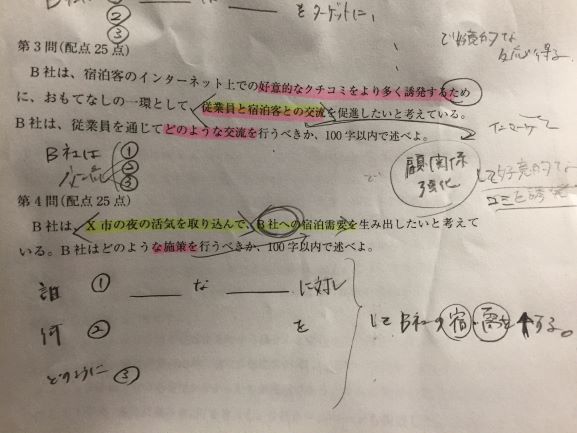 ②
③
をターゲットに、
で好意的な
反応得る
第3問(配点25点)
B社は、宿泊客のインターネット上での好意的なクチコミをより多く誘発するため
に、おもてなしの一環として、従業員と宿泊客との交流を促進したいと考えている。
B社は、従業員を通じてどのような交流を行うべきか、100字以内で述べよ。
B社は
①
②
③
で
顧関係
強化
して好意的な
コミを誘発
第4問(配点25点)
B社は、X市の夜の活気を取り込んで、B社への宿泊需要を生み出したいと考えて
いる。B社はどのような施策を行うべきか、100字以内で述べよ。
誰 ① な に対し
何 ② を
どのように ③
してB社の宿・需を↑する。